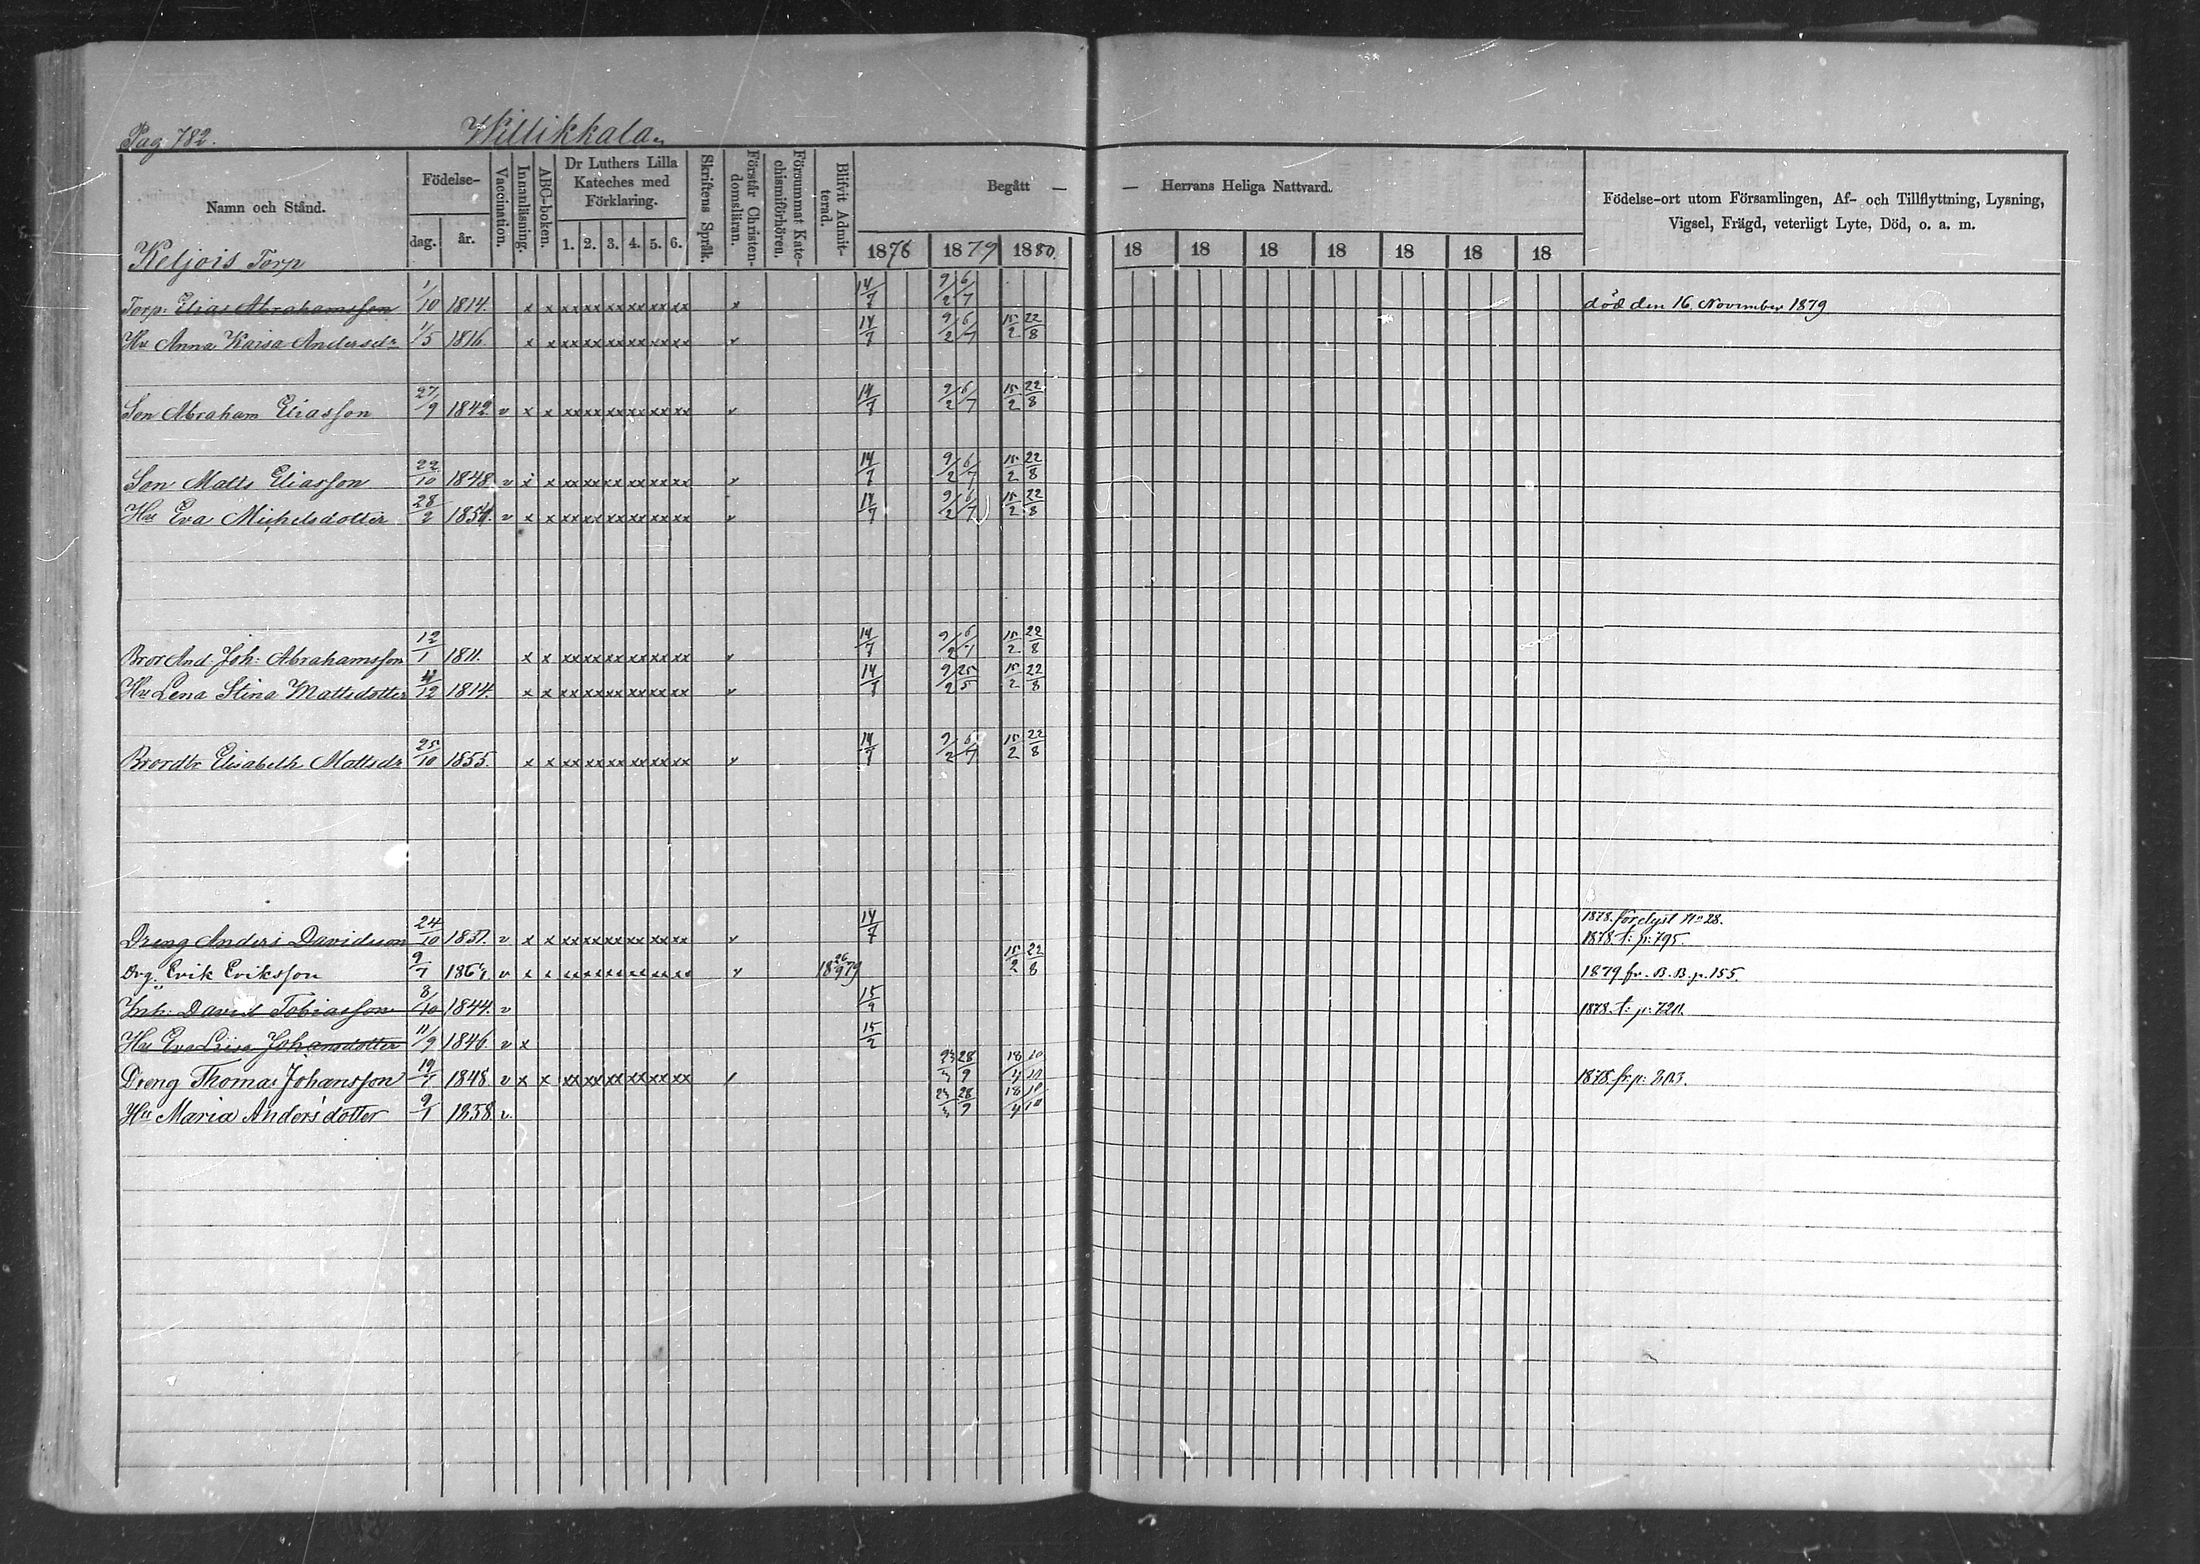 Pag. 782.
Willikkala
Namn och Stånd.
Födelse-
dag.
år.
Vaccination.
Innanläsning.
ABC-boken.
Dr Luthers Lilla
Kateches med
Förklaring.
1. 2. 3. 4. 5. 6.
Skriftens Språk.
Förstår Christen-
domsläran.
Försummat Kate-
chismiförhören.
Blifvit Admit-
terad.
Begått — — Herrans Heliga Nattvard.
1878 1879 1880. 18 18 18 18 18 18 18
Födelse-ort utom Församlingen, Af- och Tillflyttning, Lysning,
Vigsel, Frägd, veterligt Lyte, Död, o. a. m.
Keljois Torp
Torp. Elias Abrahamsson 1/10 1814. x x xx xx xx xx xx xx 14/7 9/2 6/7 död den 16 November 1879
Hu Anna Kaisa Andersdr 1/5 1816. x x xx xx xx xx xx xx 14/7 9/2 6/7 15/2 22/8
Son Abraham Eliasson 27/9 1842 v x x xx xx xx xx xx xx 14/7 9/2 6/7 15/2 22/8
Son Matts Eliasson 22/10 1848 v x x xx xx xx xx xx xx 14/7 9/2 6/7 15/2 22/8
Hu Eva Michelsdotter 28/2 v x x xx xx xx xx xx xx 14/7 9/2 6/7 15/2 22/8
Bror And. Joh: Abrahamsson 12/1 1811. x x xx xx xx xx xx xx 14/7 9/2 6/7 15/2 22/8
Hu Lena Stina Mattsdotter 12 1814. x x xx xx xx xx xx xx 14/7 9/2 25/5 15/2 22/8
Brordtr Elisabeth Mattsdr 25/10 1855. x x xx xx xx xx xx xx 14/7 9/2 6/7 15/2 22/8
1878. förelyst No 28.
Dreng Anders Davidsson 24/10 v x x xx xx xx xx xx xx 14/7 1878 t: p: 795.
Drg. Erik Eriksson 9/7 v x x xx xx xx xx xx xx 15/2 22/8 1879 fr. B. B. p. 155.
Inh: David Tobiasson 8/10 1844. v 15/9
Hu Eva Lovisa Johansdotter 11/9 1846. v x 15/2
Dreng Thomas Johansson 1848 v x x xx xx xx xx xx xx 28/9 18/4
Hu Maria Andersdotter 9/1 1858 v. 28/9 18/4